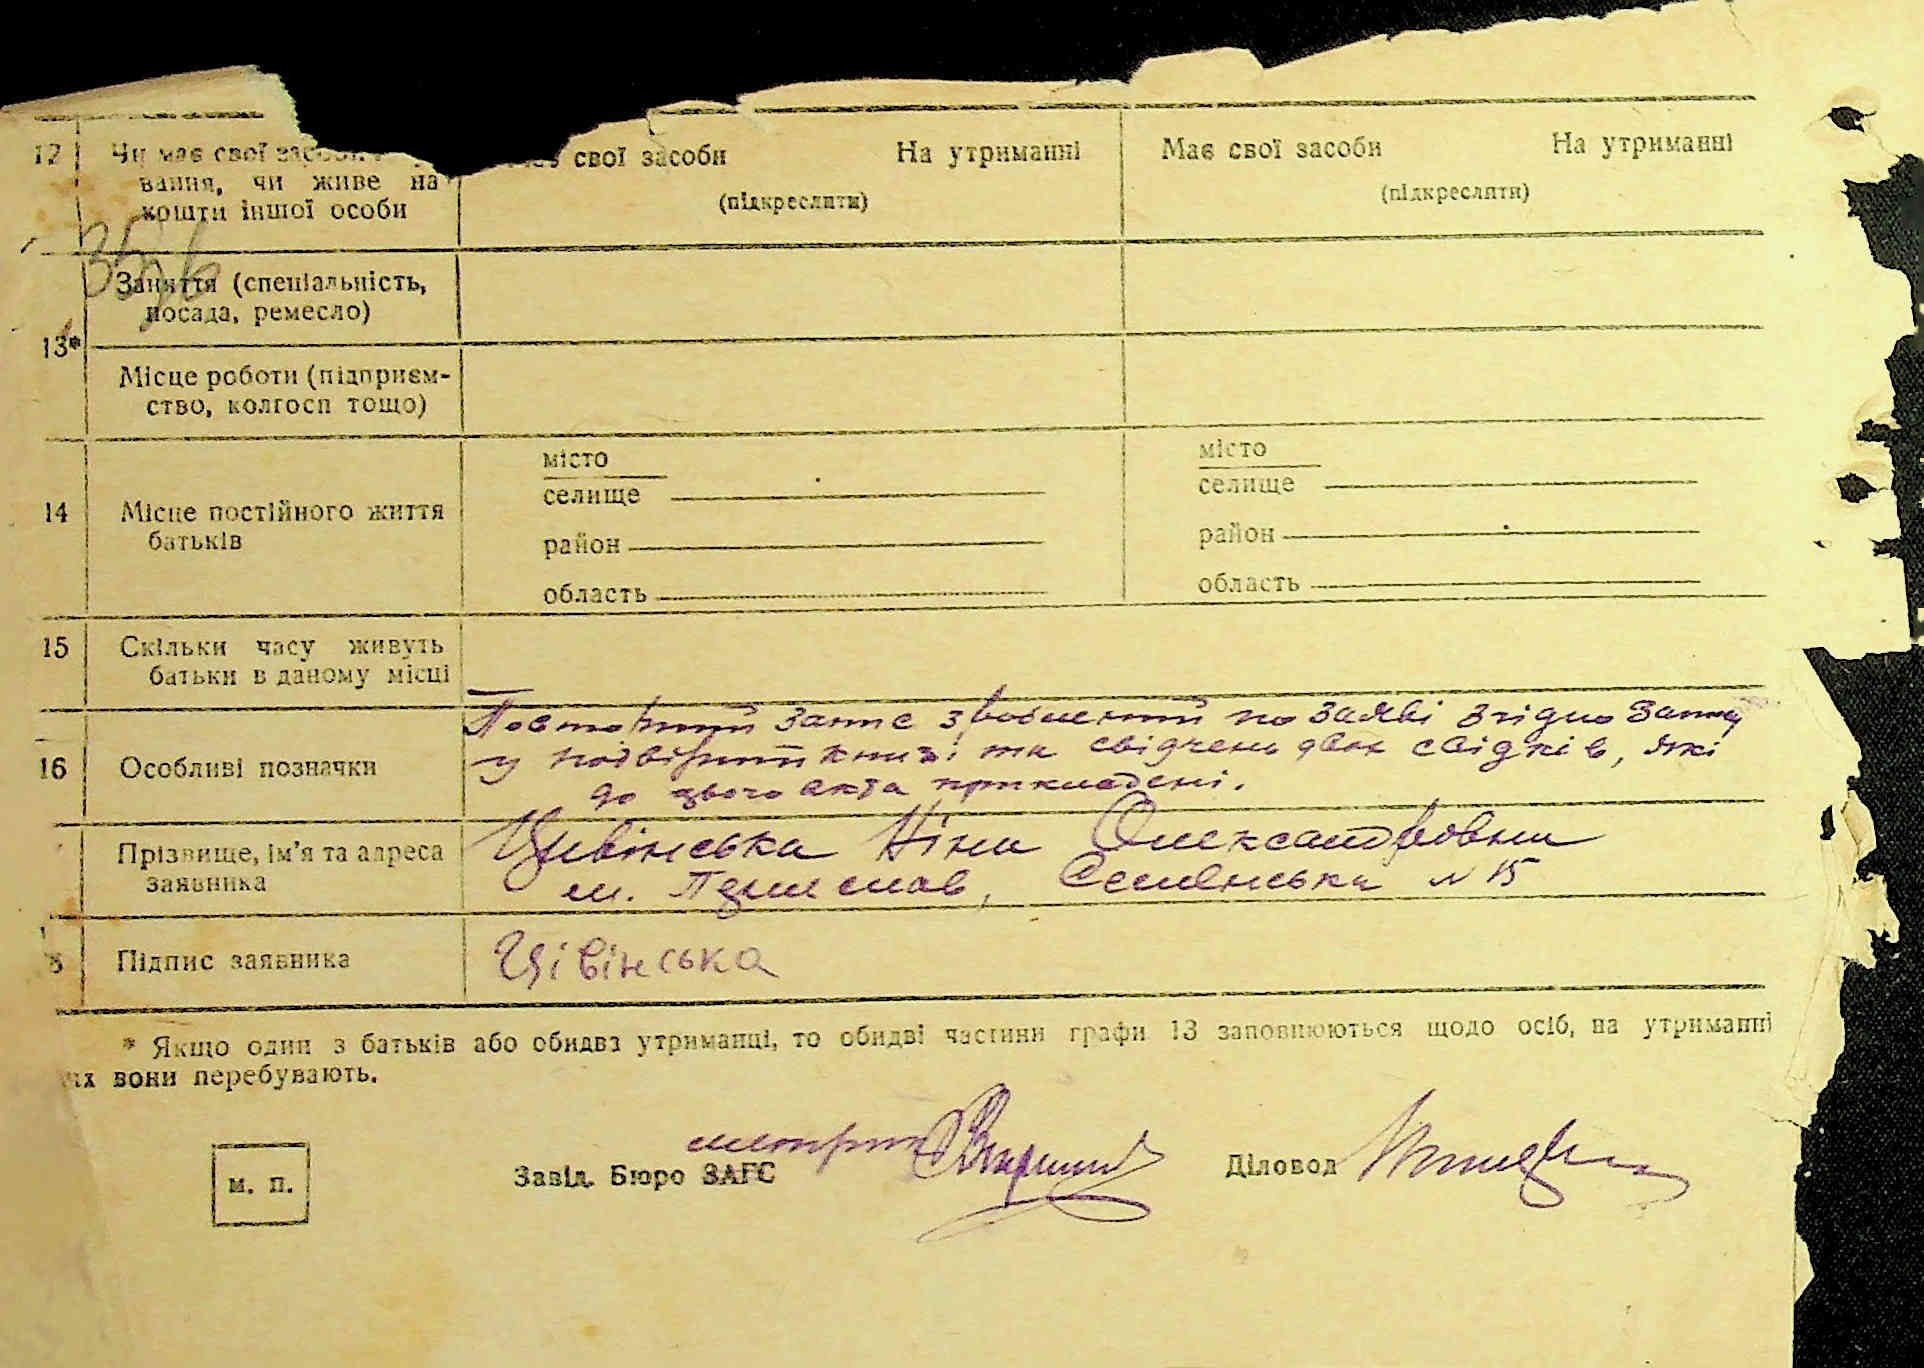 12 Чи має свої засоби
вання, чи живе на
кошти іншої особи
Має свої засоби На утриманні
(підкреслити)
Має свої засоби На утриманні
(підкреслити)
13*
Заняття (спеціальність,
посада, ремесло)
Місце роботи (підприєм-
ство, колгосп тощо)
14 Місце постійного життя
батьків
місто
селище
район
область
місто
селище
район
область
15 Скільки часу живуть
батьки в даному місці
16 Особливі позначки
Повторний запис зроблений по заяві згідно запису
у подвірній книзі та свідчень двох свідків, які
до цього акта прикладені.
Прізвище, ім'я та адреса
заявника
Цивінська Ніна Олександровна
м. , №15
Підпис заявника
Цівінська
* Якщо один з батьків або обидва утриманці, то обидві частини графи 13 заповнюються щодо осіб, на утриманні
их вони перебувають.
м. п.
Завід. Бюро ЗАГС
Діловод